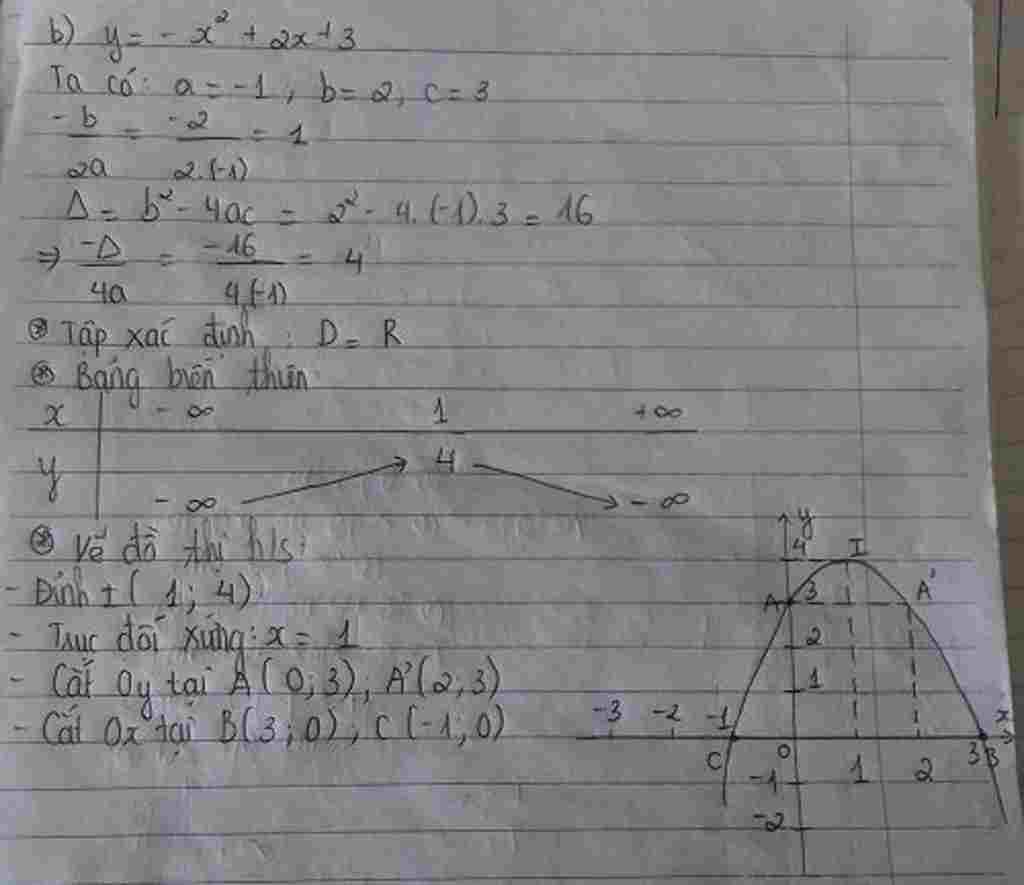 b) y = - x² + 2x + 3
Ta có: a = -1, b = 2, c = 3
-b/2a = -2/2.(-1) = 1
Δ = b² - 4ac = 2² - 4.(-1).3 = 16
⇒ -Δ/4a = -16/4.(-1) = 4
⊛ Tập xác định : D = R
⊛ Bảng biến thiên
x - ∞ 1 + ∞
y - ∞ 4 - ∞
⊛ Vẽ đồ thị h/s:
- Đỉnh I (1; 4)
- Trục đối xứng: x = 1
- Cắt Oy tại A(0;3), A'(2,3)
- Cắt Ox tại B(3;0), C(-1;0)
y
4 I
A 3 A'
2
1
-3 -2 -1 x
C O 1 2 3 B
-1
-2